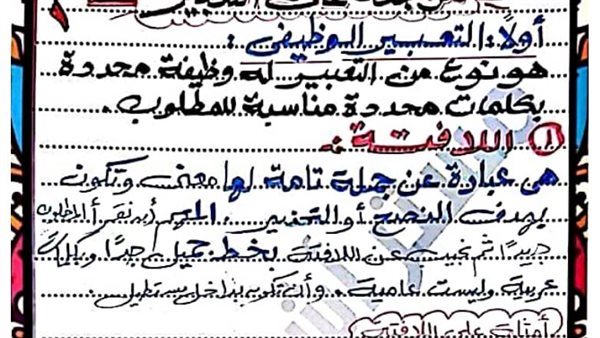 أولاً: التعبير الوظيفى :
هو نوع من التعبير له وظيفة محددة
بكلمات محددة مناسبة للمطلوب.
① اللافتة :
هى عبارة عن جملة تامة لها معنى وتكون
بهدف النصح أو التحذير . المهم أن نقرأ المطلوب
جيدًا ثم نجيب عن اللافتة بخط جميل جدًا وبكلمات
عربية وليست عامية. وأن تكون بداخل مستطيل.
أمثلة على اللافتة